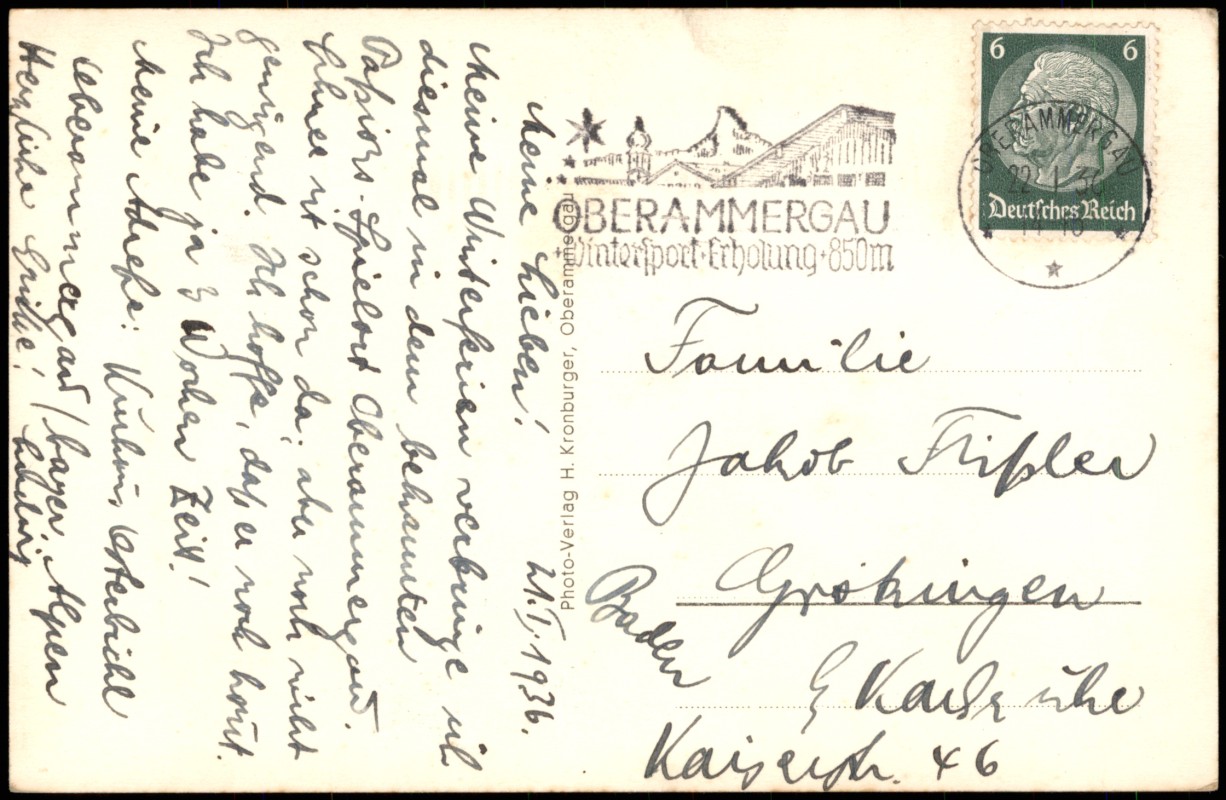 Meine Lieben! 21.I.1936.
Meine Winterferien verbringe ich
diesmal in dem bekannten
Passions-Spielort Oberammergau.
Schnee ist schon da, aber noch nicht
genügend. Ich hoffe, daß er noch kommt.
Ich habe ja 3 Wochen Zeit!
Meine Adresse:
Oberammergau / bayer. Alpen
Herzliche Grüße! Hedwig
Photo-Verlag H. Kronburger, Oberammergau
OBERAMMERGAU
Wintersport · Erholung · 850m
6 6
Deutsches Reich
OBERAMMERGAU
22.1.36
Familie
Jakob Fißler
Grötzingen
Baden
b/ Karlsruhe
Kaiserstr. 46